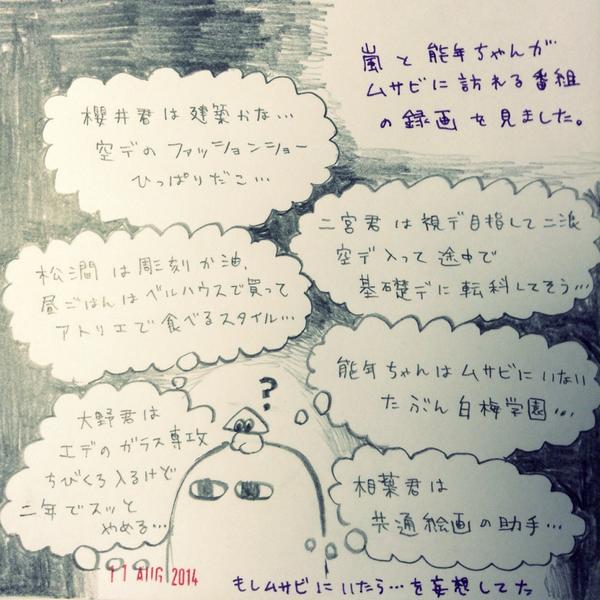 嵐と能年ちゃんが
ムサビに訪れる番組
の録画を見ました。
櫻井君は建築かな…
空デのファッションショー
ひっぱりだこ…
二宮君は視デ目指して二浪
空デ入って途中で
基礎デに転科してそう…
松潤は彫刻か油、
昼ごはんはベルハウスで買って
アトリエで食べるスタイル…
能年ちゃんはムサビにいない
たぶん白梅学園…
?
大野君は
エデのガラス専攻
ちびくろ入るけど
二年でスッと
やめる…
相葉君は
共通絵画の助手…
11 AUG 2014
もしムサビにいたら…を妄想してた